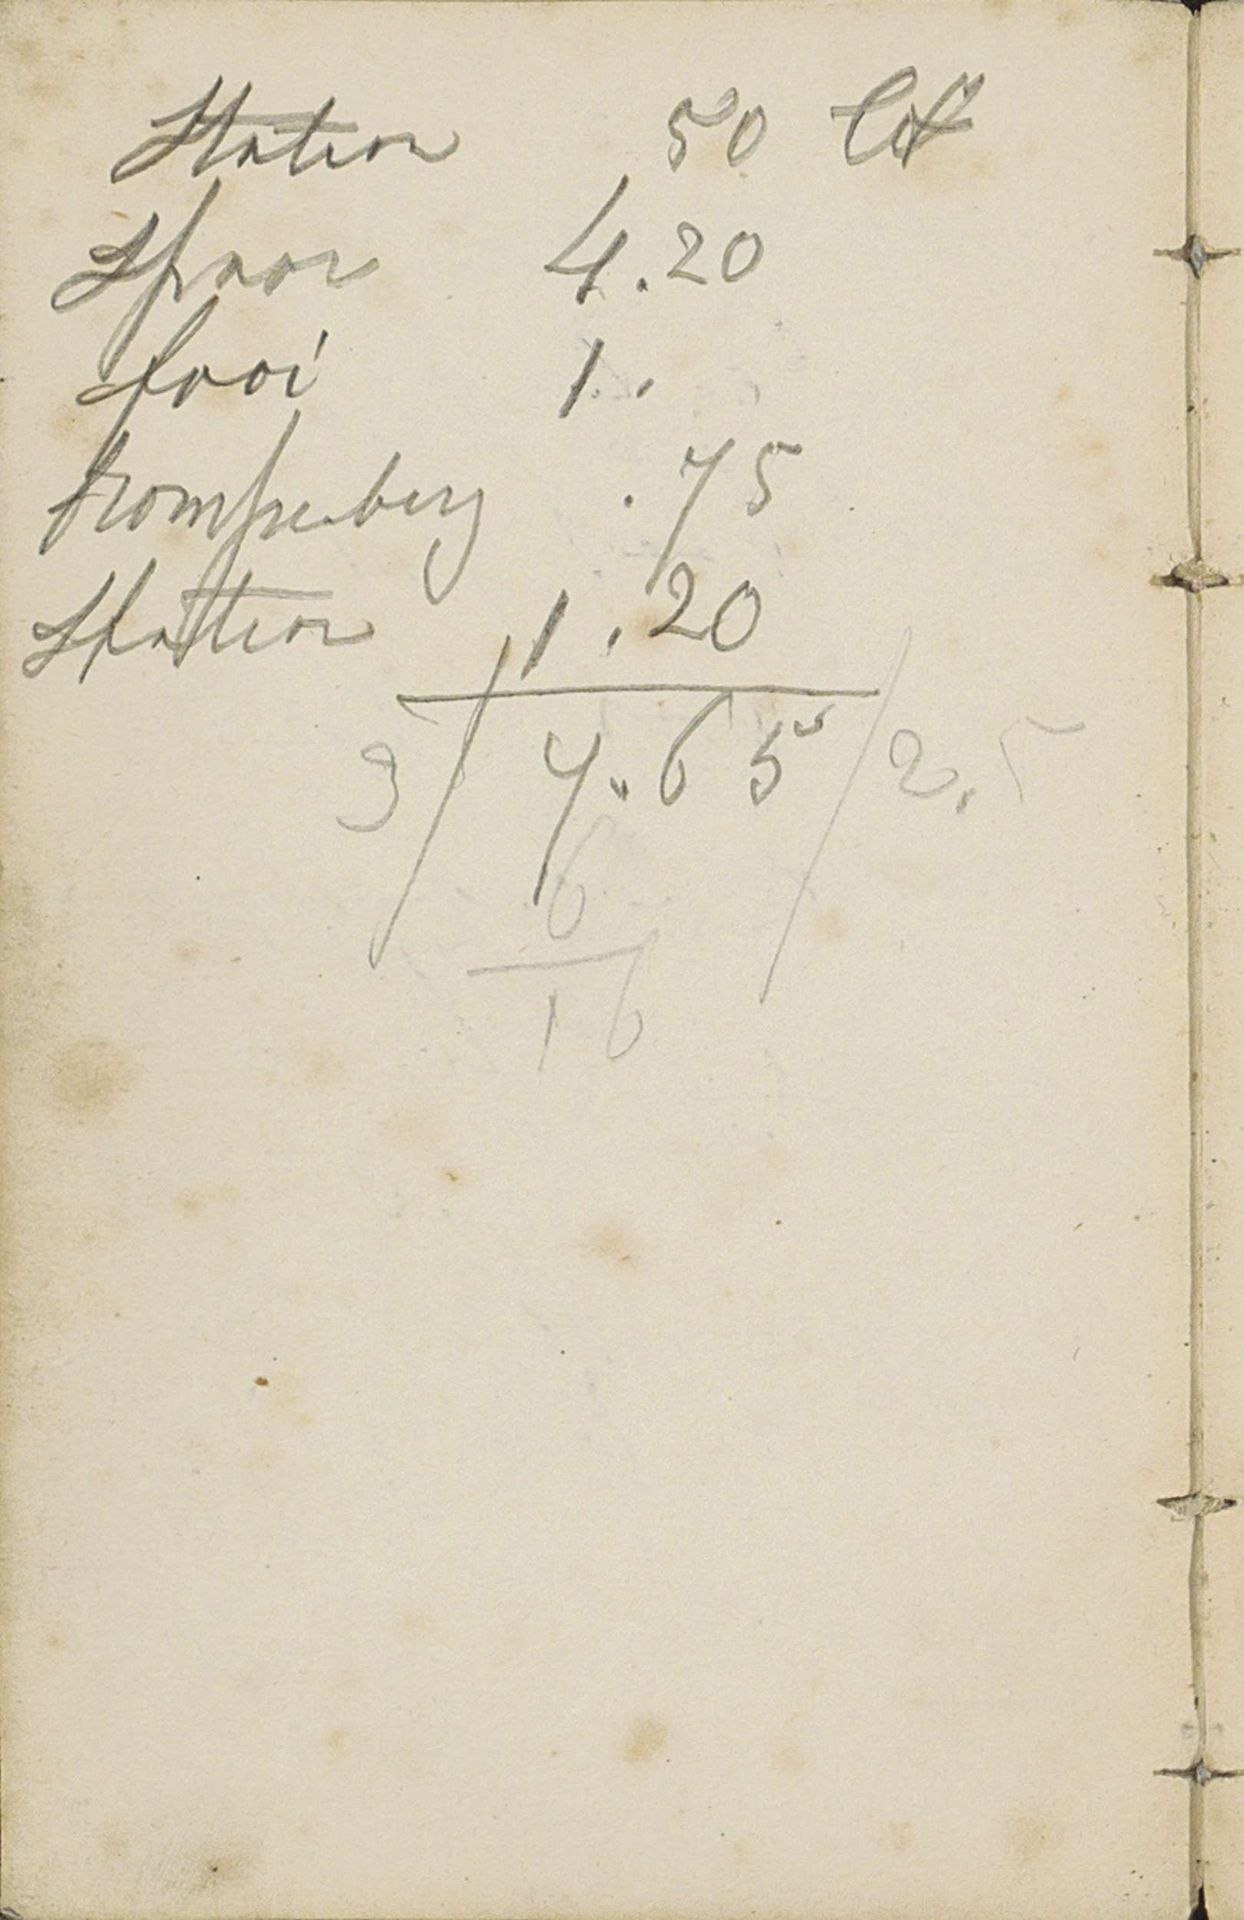 Station 50 Ct
Spoor 4.20
fooi 1.
Trompenberg .75
Station 1.20
3 / 7.65 / 2.5
6
16